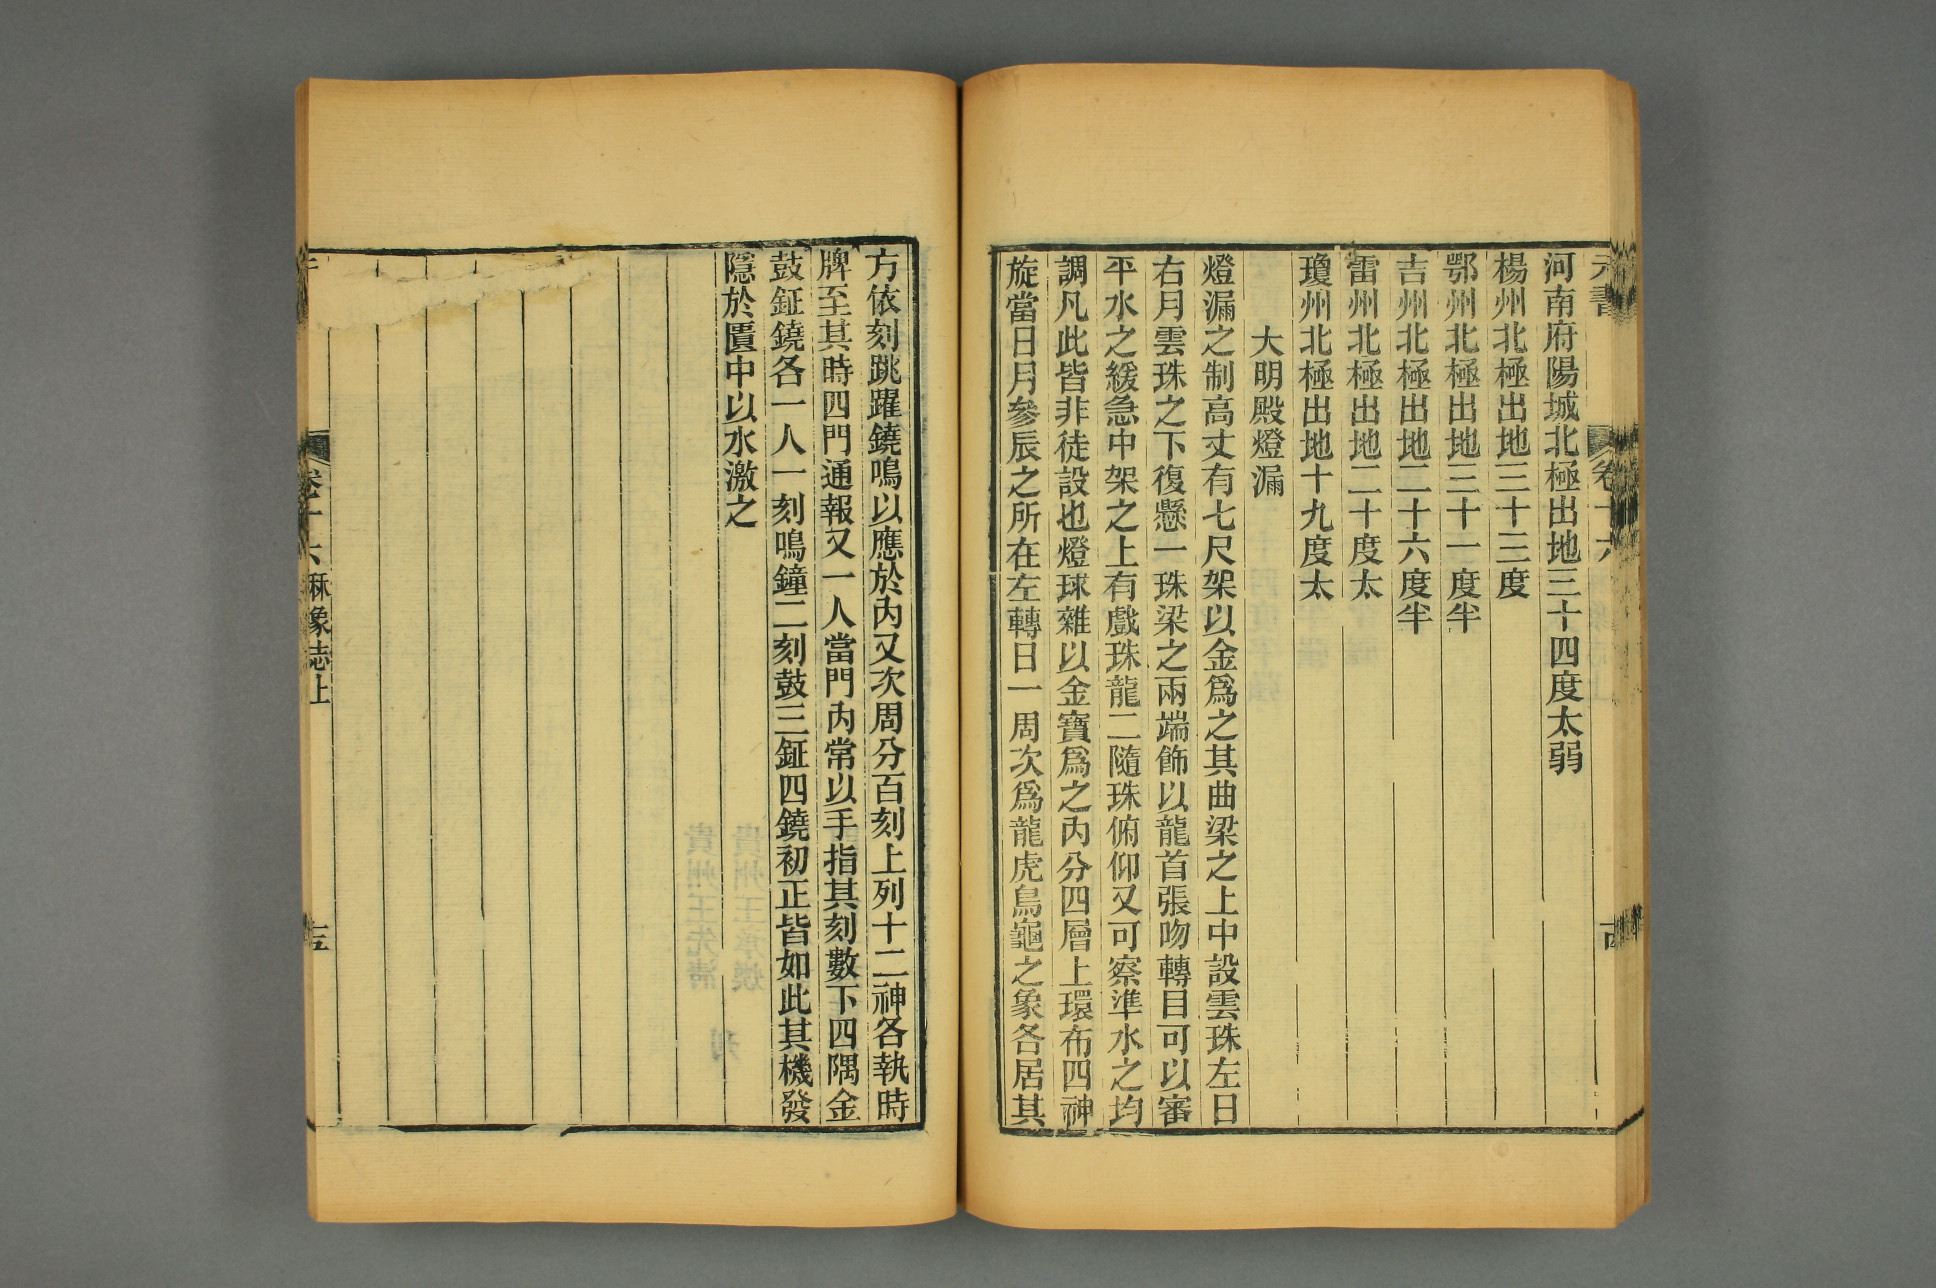 元書
卷十六
古
河南府陽城北極出地三十四度太弱
楊州北極出地三十三度
鄂州北極出地三十一度半
吉州北極出地二十六度半
雷州北極出地二十度太
瓊州北極出地十九度太
大明殿燈漏
燈漏之制高丈有七尺架以金爲之其曲梁之上中設雲珠左日
右月雲珠之下復懸一珠梁之兩端飾以龍首張吻轉目可以審
平水之緩急中架之上有戲珠龍二隨珠俯仰又可察準水之均
調凡此皆非徒設也燈球雜以金寶爲之內分四層上環布四神
旋當日月參辰之所在左轉日一周次爲龍虎鳥龜之象各居其
方依刻跳躍鐃鳴以應於內又次周分百刻上列十二神各執時
牌至其時四門通報又一人當門內常以手指其刻數下四隅金
鼓鉦鐃各一人一刻鳴鐘二刻鼓三鉦四鐃初正皆如此其機發
隱於匱中以水激之
卷十六
厤象志上